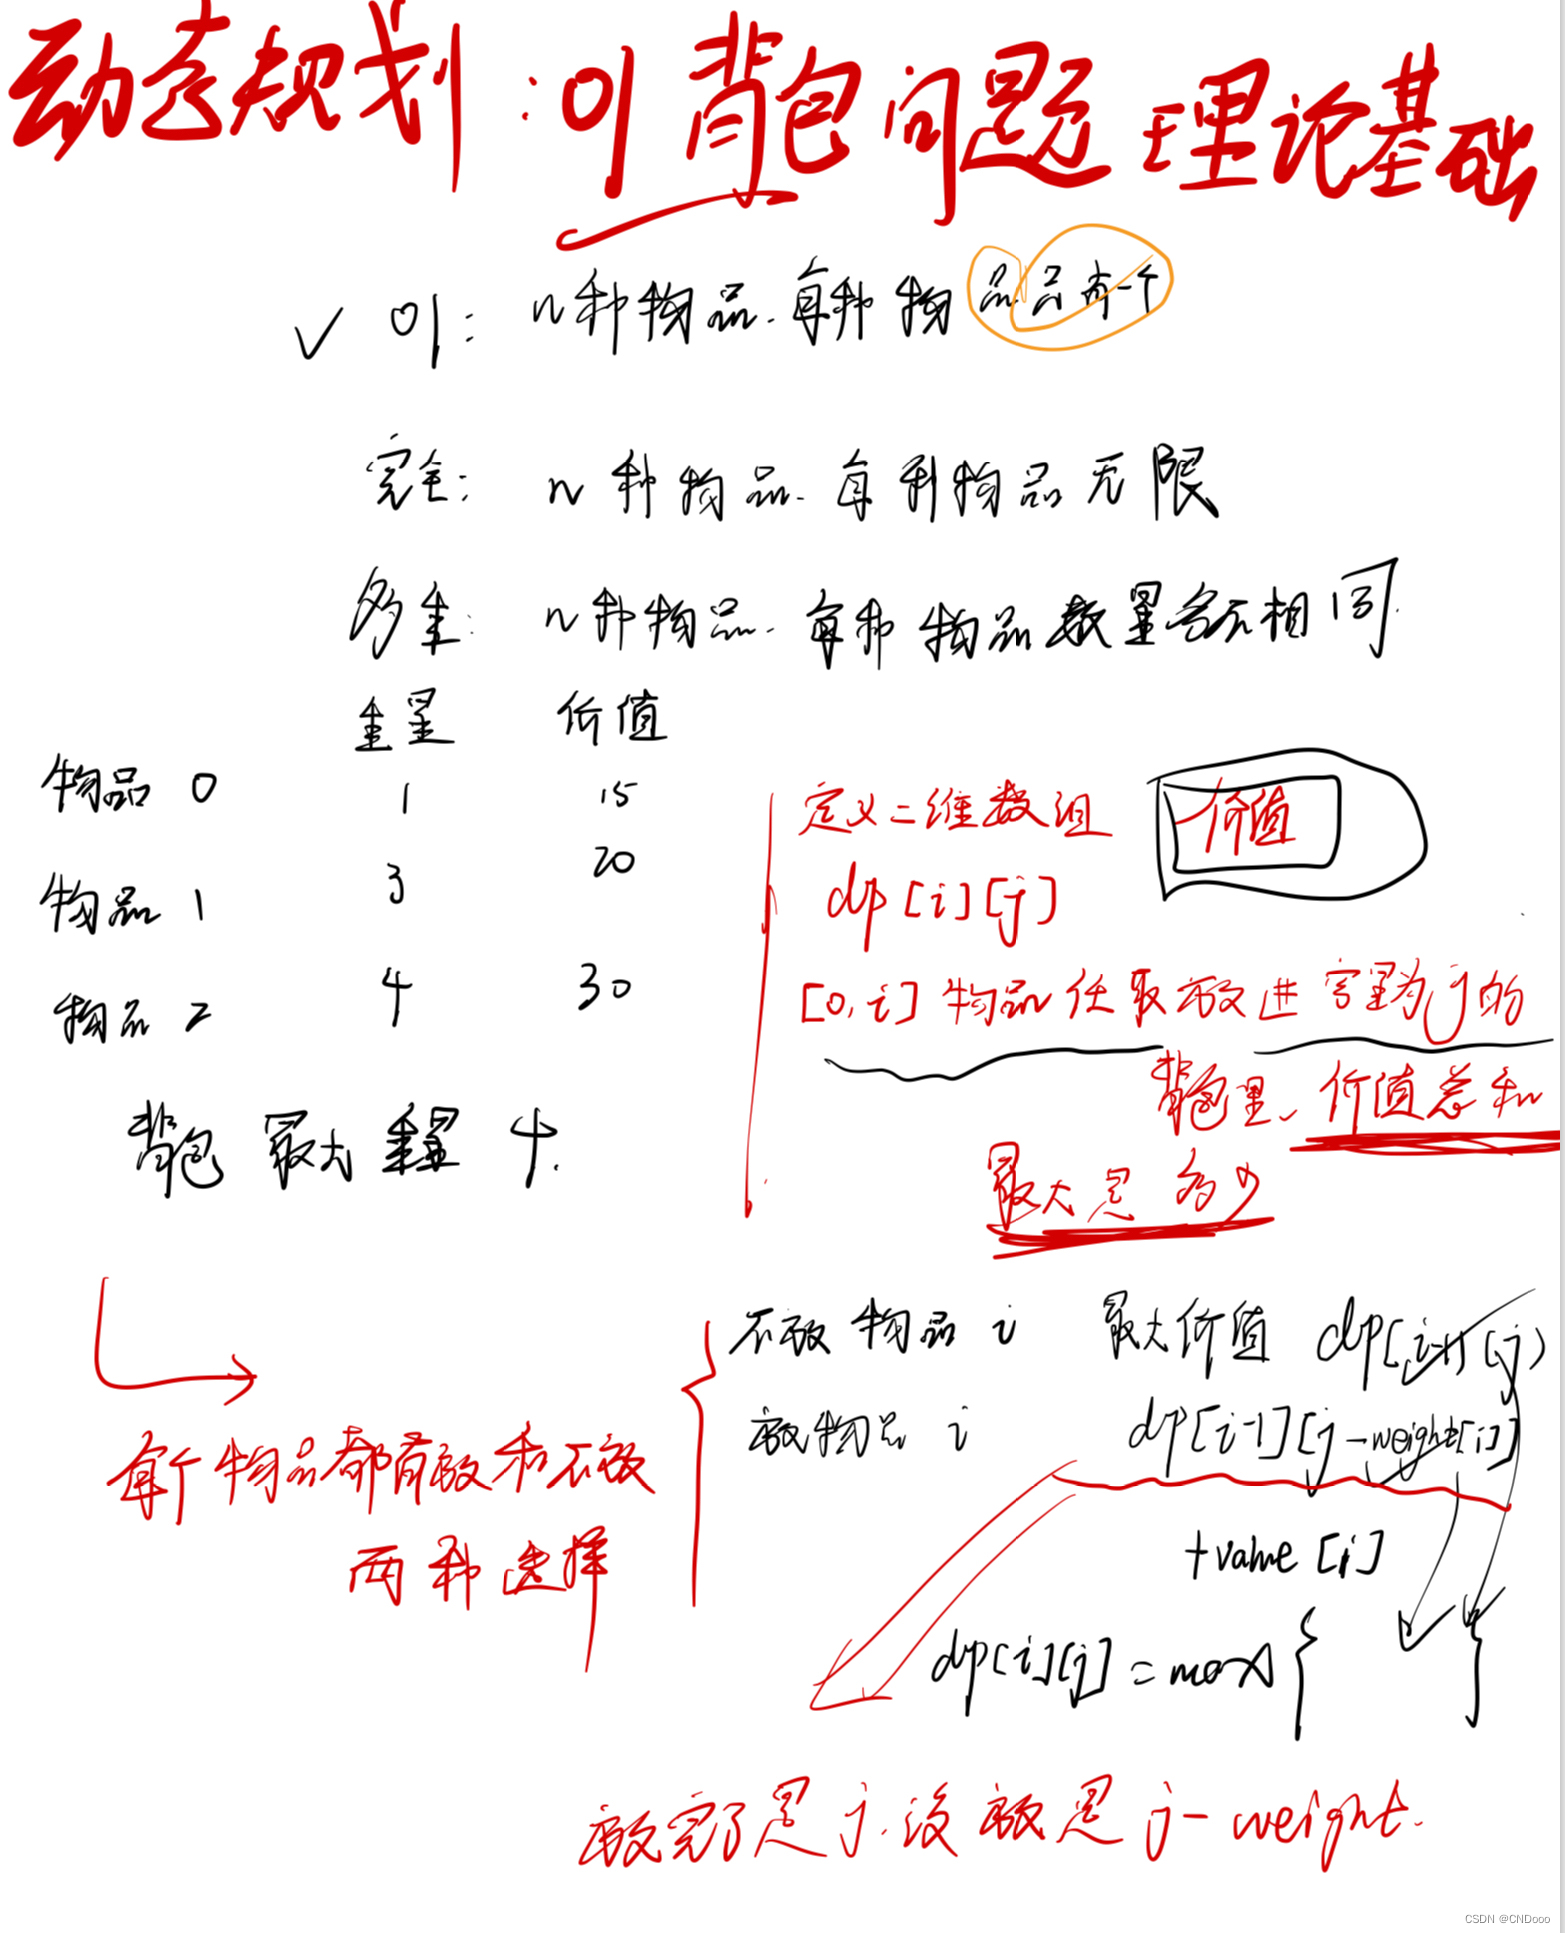 动态规划：01背包问题理论基础
✓ 01： n种物品.每种物品只有一个
完全： n种物品.每种物品无限
多重： n种物品.每种物品数量各不相同
重量 价值
物品0 1 15
物品1 3 20
物品2 4 30
背包最大重量4.
定义二维数组 价值
dp[i][j]
[0,i]物品任取放进容量为j的
背包里、价值总和
最大是多少
每个物品都有放和不放
两种选择
不放物品i 最大价值 dp[i-1][j]
放物品i dp[i-1][j-weight[i]]
+value[i]
dp[i][j]=max{ }
放完了是j.没放是j-weight.
CSDN @CNDooo